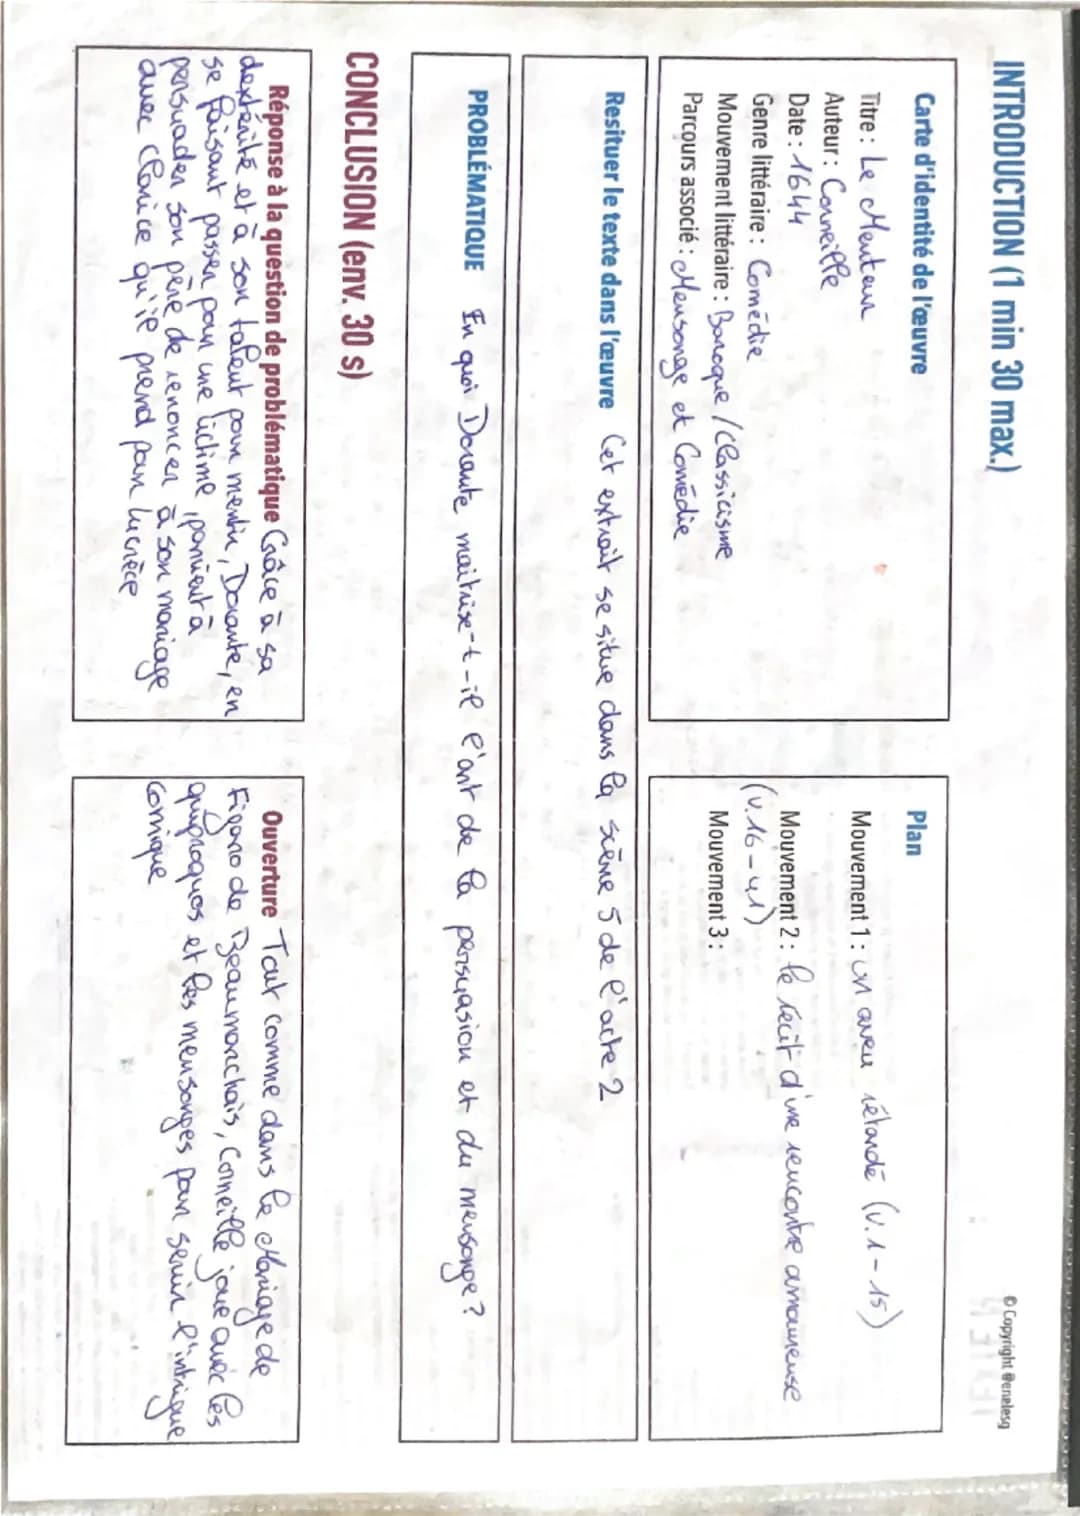 INTRODUCTION (1 min 30 max.)
© Copyright @enelesq
Carte d'identité de l'œuvre
Titre : Le Menteur
Auteur : Corneille
Date : 1644
Genre littéraire : Comédie
Mouvement littéraire : Baroque / Classicisme
Parcours associé : Mensonge et Comédie
Plan
Mouvement 1 : un aveu rétardé (v.1-15)
Mouvement 2 : le récit d'une rencontre amoureuse
(v.16-41)
Mouvement 3 :
Resituer le texte dans l'œuvre Cet extrait se situe dans la scène 5 de l'acte 2
PROBLÉMATIQUE En quoi Dorante maitrise-t-il l'art de la persuasion et du mensonge ?
CONCLUSION (env. 30 s)
Réponse à la question de problématique Grâce à sa
dextérité et à son talent pour mentir, Dorante, en
se faisant passer pour une victime, parvient à
persuader son père de renoncer à son mariage
avec Clarice qu'il prend pour Lucrèce
Ouverture Tout comme dans le Mariage de
Figaro de Beaumarchais, Corneille joue avec les
quiproquos et les mensonges pour servir l'intrigue
comique